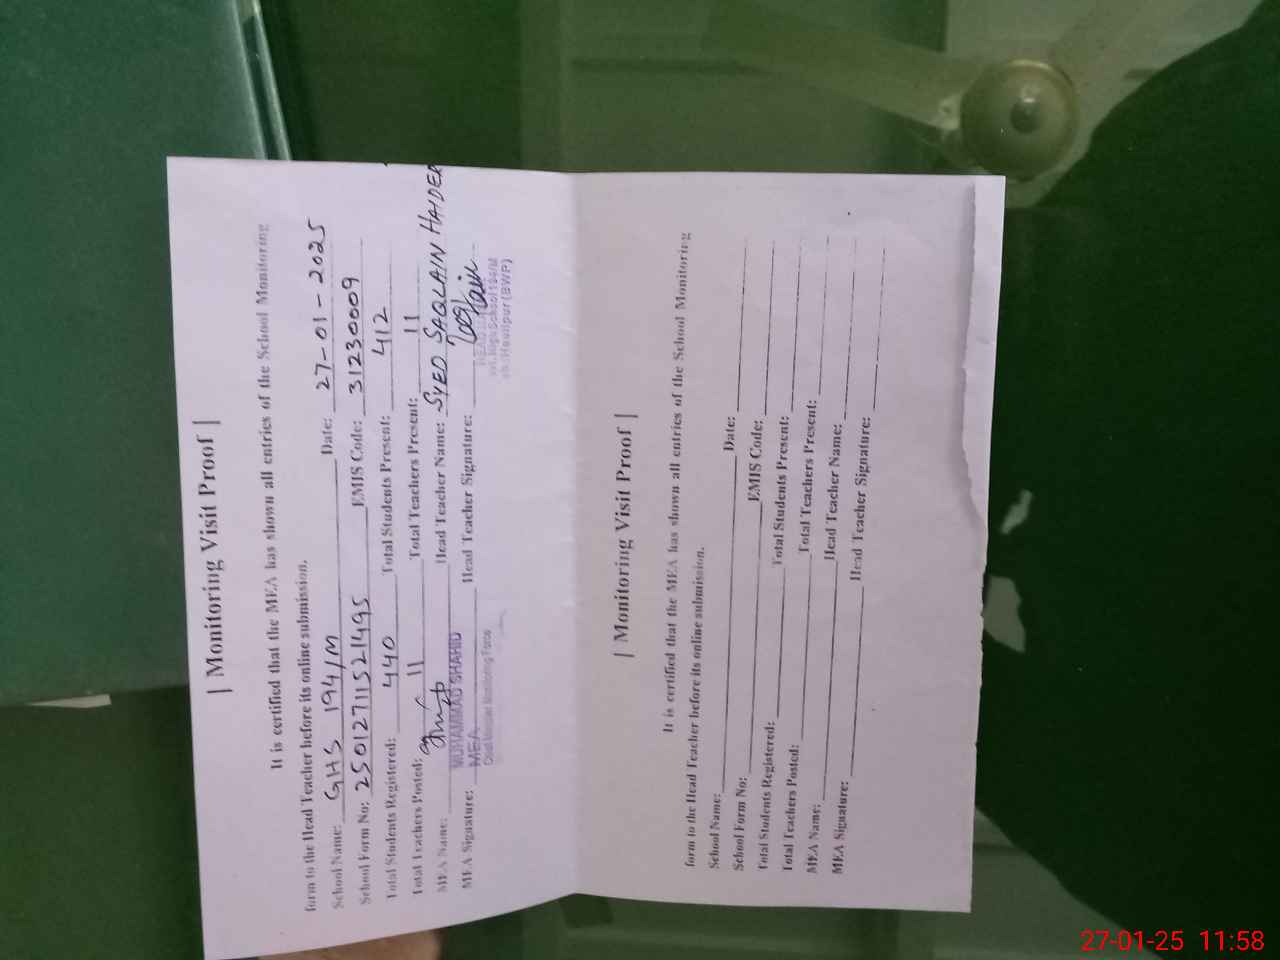 | Monitoring Visit Proof |
It is certified that the MEA has shown all entries of the School Monitoring
form to the Head Teacher before its online submission.
School Name: GHS 194/M Date: 27-01-2025
School Form No: 25012711521495 EMIS Code: 31230009
Total Students Registered: 440 Total Students Present: 412
Total Teachers Posted: 11 Total Teachers Present: 11
MEA Name: MUHAMMAD SHAHID Head Teacher Name: SYED SAQLAIN HAIDER
MEA Signature: MEA Head Teacher Signature:
Chief Minister Monitoring Force
High School 194/M
Hasilpur (BWP)
| Monitoring Visit Proof |
It is certified that the MEA has shown all entries of the School Monitoring
form to the Head Teacher before its online submission.
School Name: Date:
School Form No: EMIS Code:
Total Students Registered: Total Students Present:
Total Teachers Posted: Total Teachers Present:
MEA Name: Head Teacher Name:
MEA Signature: Head Teacher Signature:
27-01-25 11:58